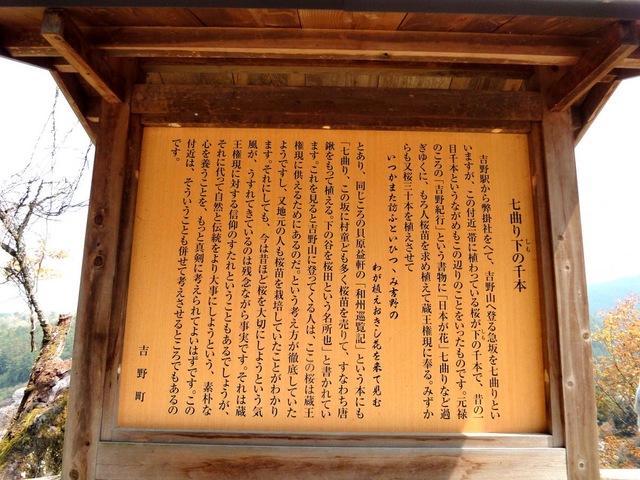 七曲り下の千本
吉野駅から幣掛社をへて、吉野山へ登る急坂を七曲りとい
いますが、この付近一帯に植わっている桜が下の千本で、昔の一
目千本というながめもこの辺りのことをいったものです。元禄
のころの「吉野紀行」という書物に「日本が花」七曲りなど過
ぎゆくに、もろ人桜苗を求め植えて蔵王権現に奉る。みずか
らも又桜三十本を植えさせて
いつかまた訪ふといひつゝみ吉野の
わが植えおきし花を来て見む
とあり、同じころの貝原益軒の「和州巡覧記」という本にも
「七曲り、この坂に村童ども多く桜苗を売りて、すなわち唐
鍬をもって植える。下の谷を桜田という名所也」と書かれてい
ます。これを見ると吉野山に登ってくる人は、ここの桜は蔵王
権現に供えるためにあるのだ。という考え方が徹底していた
ようですし、又地元の人も桜苗を栽培していたことがわかり
ます。それにしても、今は昔ほど桜を大切にしようという気
風が、うすれてきているのは残念ながら事実です。それは蔵
王権現に対する信仰のすたれということもあるでしょうが、
それに代って自然と伝統をより大事にしようという、素朴な
心を養うことを、もっと真剣に考えられてよいはずです。この
付近は、そういうことも併せて考えさせるところでもあるの
です。
吉野町